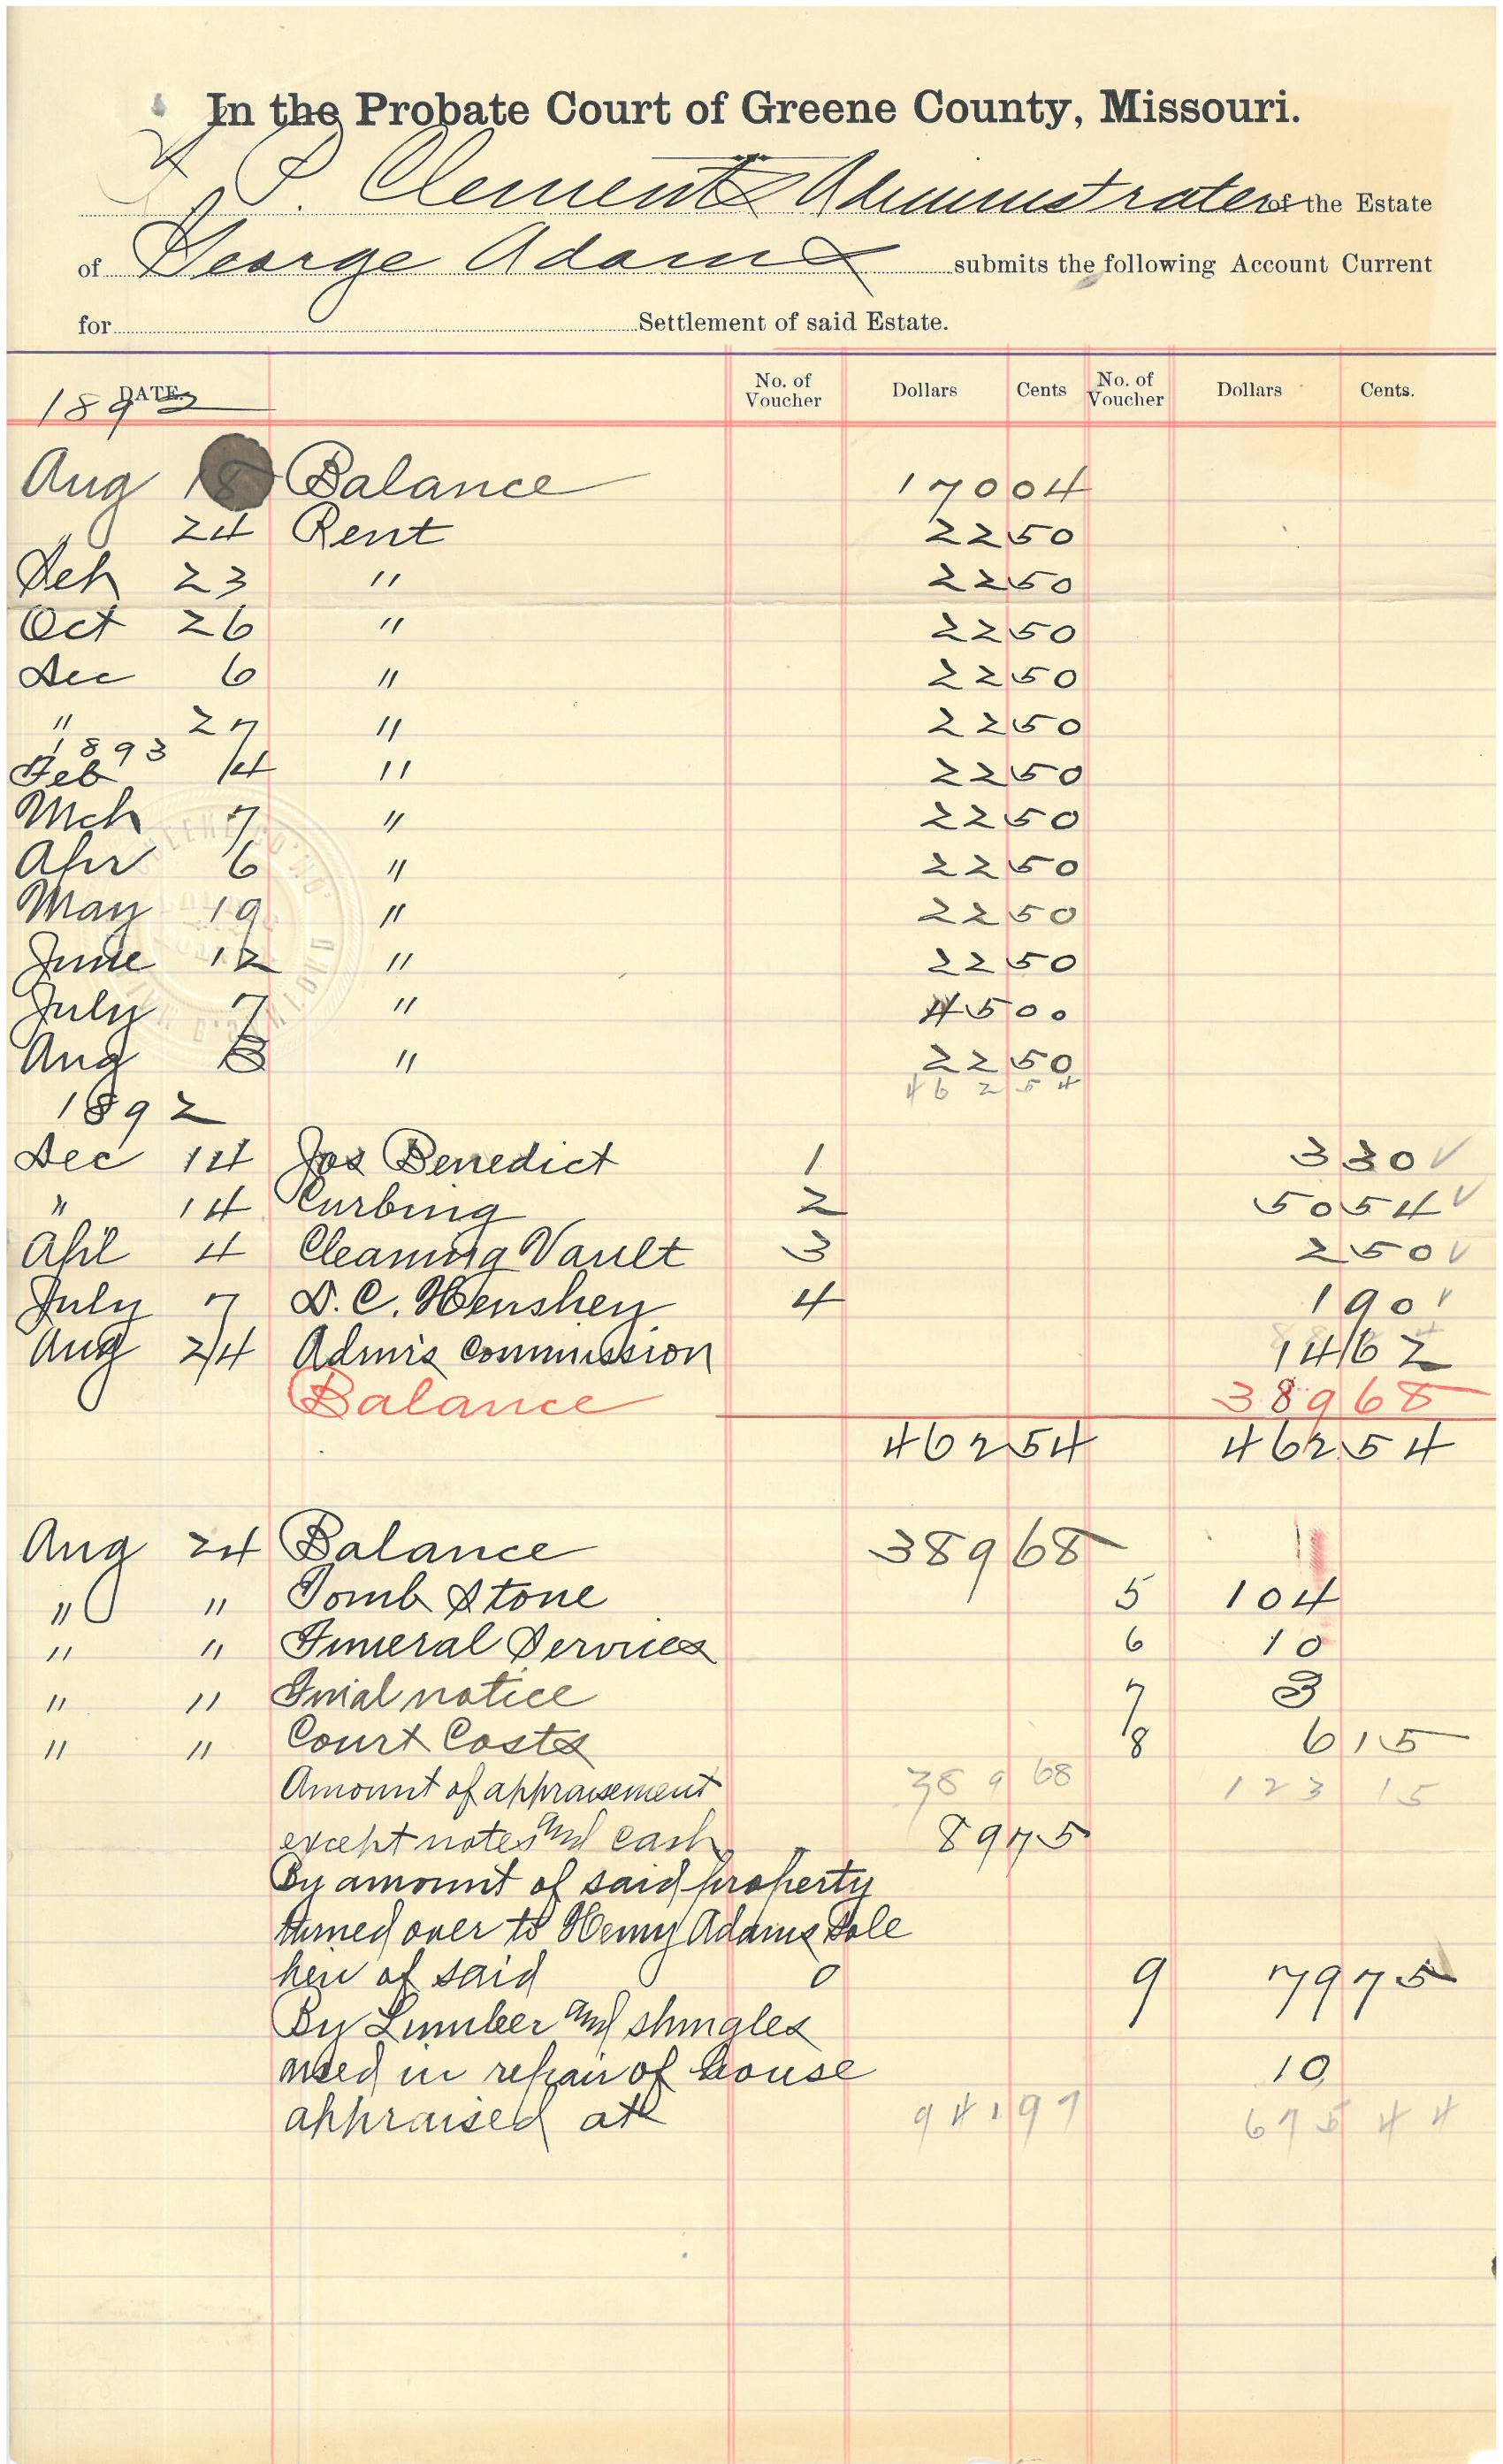 In the Probate Court of Greene County, Missouri.
P. Clements Administrator of the Estate
of George Adams submits the following Account Current
for Settlement of said Estate.
DATE. No. of Voucher Dollars Cents No. of Voucher Dollars Cents.
1892
Aug 18 Balance 170 04
" 24 Rent 22 50
Sep 23 " 22 50
Oct 26 " 22 50
Dec 6 " 22 50
" 27 " 22 50
1893
Feb 14 " 22 50
Mch 7 " 22 50
Apr 6 " 22 50
May 19 " 22 50
June 12 " 22 50
July 7 " 45 00
Aug 8 " 22 50
462 54
1892
Dec 14 Jos Benedict 1 3 30 √
" 14 Curbing 2 50 54 √
Apl 4 Cleaning Vault 3 2 50 √
July 7 D. C. Henshey 4 1 90 √
Aug 24 Admr's Commission 14 62
Balance 389 68
462 54 462 54
Aug 24 Balance 389 68
" " Tomb Stone 5 104
" " Funeral Services 6 10
" " Finial notice 7 3
" " Court Costs 8 6 15
Amount of appraisement 389 68 123 15
except notes and cash 89 75
By amount of said property
turned over to Henry Adams Sole
heir of said 9 79 75
By Lumber and shingles
used in repair of house 10
appraised at 941 97 675 44